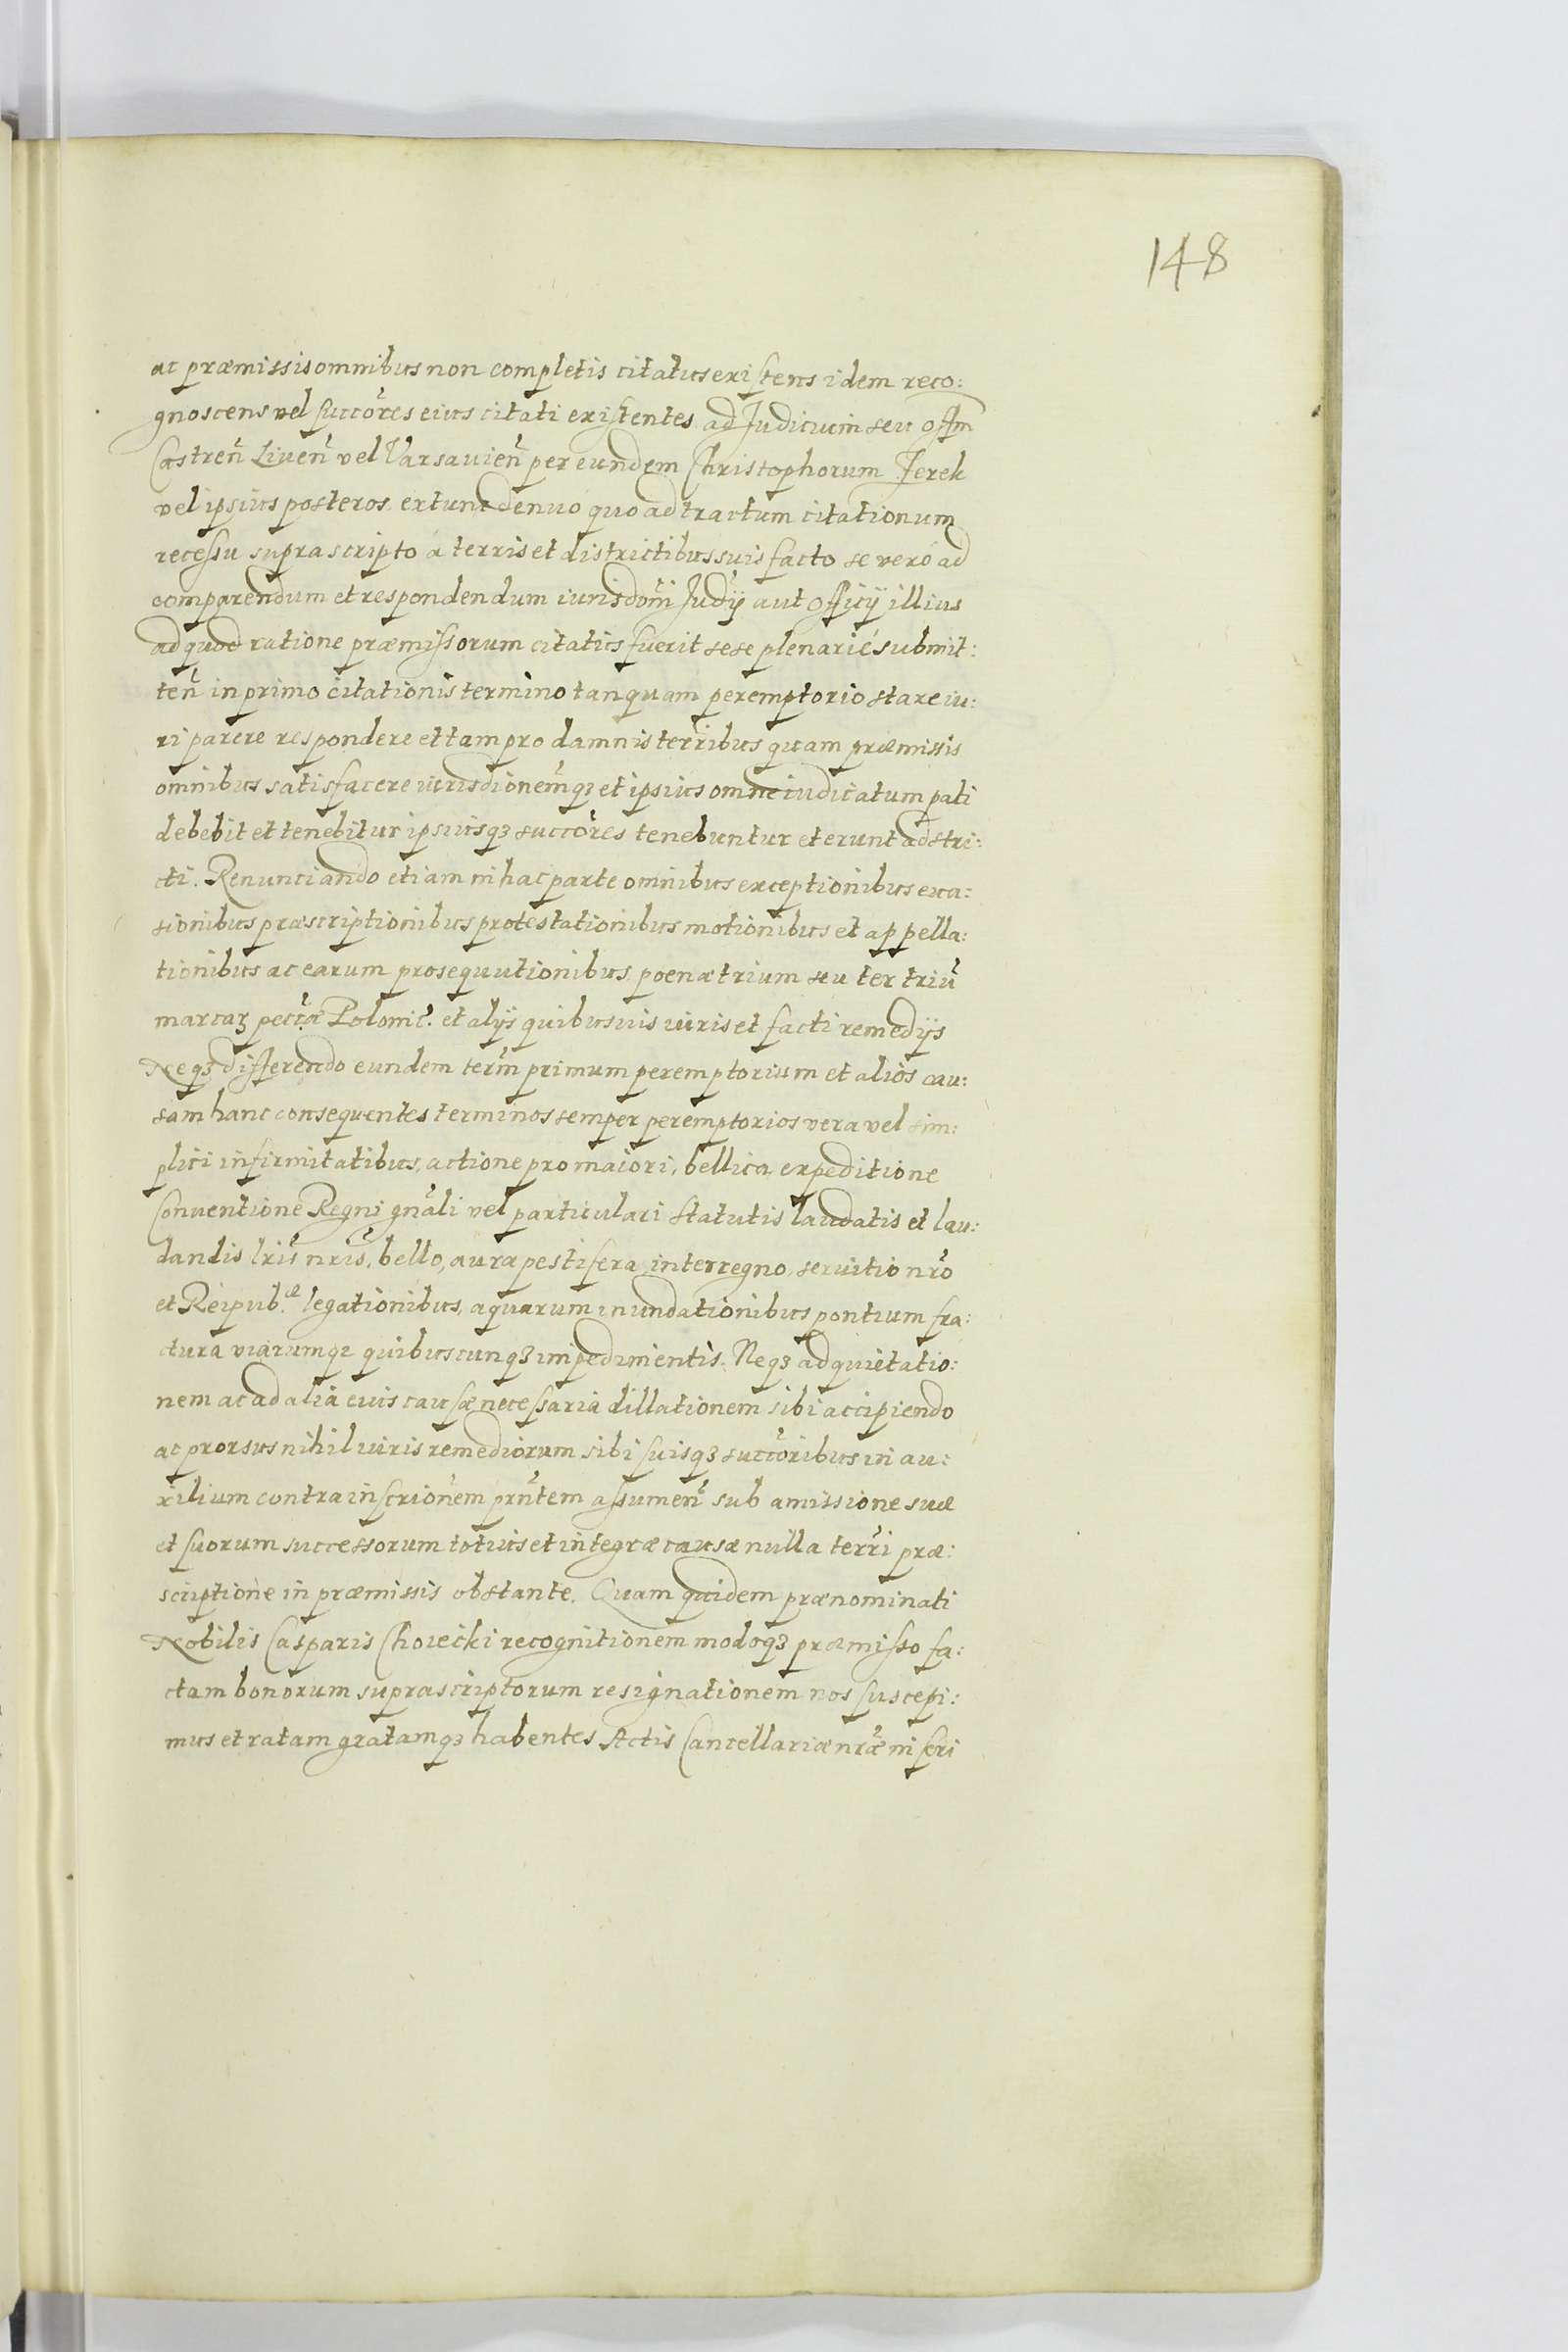 148
ac præmissis omnibus non completis citatus existens idem reco:
gnoscens vel succõres eius citati existentes ad Judicium seu offm
Castreñ Liveñ vel Varsavieñ per eundem Christophorum Jerek
vel ipsius posteros extunc denuo quo ad tractum citationum
recessu suprascripto á terris et districtibus suis facto se veró ad
comparendum et respondendum iurisdom̃i Judỹ aut officÿ illius
ad quod ratione præmissorum citatus fuerit sese plenarié submit:
teñ in primo citationis termino tanquam peremptorio stare iu:
ri parere respondere et tam pro damnis terr̃ibus quam præmissis
omnibus satisfacere iurisdionem̃qꝫ et ipsius omne iudicatum pati
debebit et tenebitur ipsiusqꝫ succõres tenebuntur et erunt adstri:
cti. Renunciando etiam in hac parte omnibus exceptionibus eua:
sionibus præscriptionibus protestationibus motionibus et appella:
tionibus ac earum prosequutionibus poenæ trium seu ter triũ
marcaꝝ pecc̃æ Polonic̃. et alÿs quibusuis iuris et facti remedÿs
Neqꝫ differendo eundem term̃ primum peremptorium et alios cau:
sam hanc consequentes terminos semper peremptorios vera vel sim:
plici infirmitatibus, actione pro maiori, bellica expeditione
Conventione Regni gñali vel particulari statutis laudatis et lau:
dandis lrĩs nrĩs, bello, aura pestifera, interregno, seruitio nrõ
et Reipub.æ legationibus, aquarum inundationibus pontium fra:
ctura viarumqꝫ quibuscunqꝫ impedimentis. Neqꝫ ad quietatio:
nem ac ad alia euis causæ necessaria dillationem sibi accipiendo
ac prorsus nihil iuris remediorum sibi suisqꝫ succõribus in au:
xilium contra inscrionẽm prñtem assumeñ sub amissione suæ
et suorum successorum totius et integræ causæ nulla terr̃i præ:
scriptione in præmissis obstante. Quam quidem prænominati
Nobilis Casparis Choiecki recognitionem modoqꝫ præmisso fa:
ctam bonorum suprascriptorum resignationem nos suscepi:
mus et ratam gratamqꝫ habentes Actis Cancellariæ nræ̃ inseri